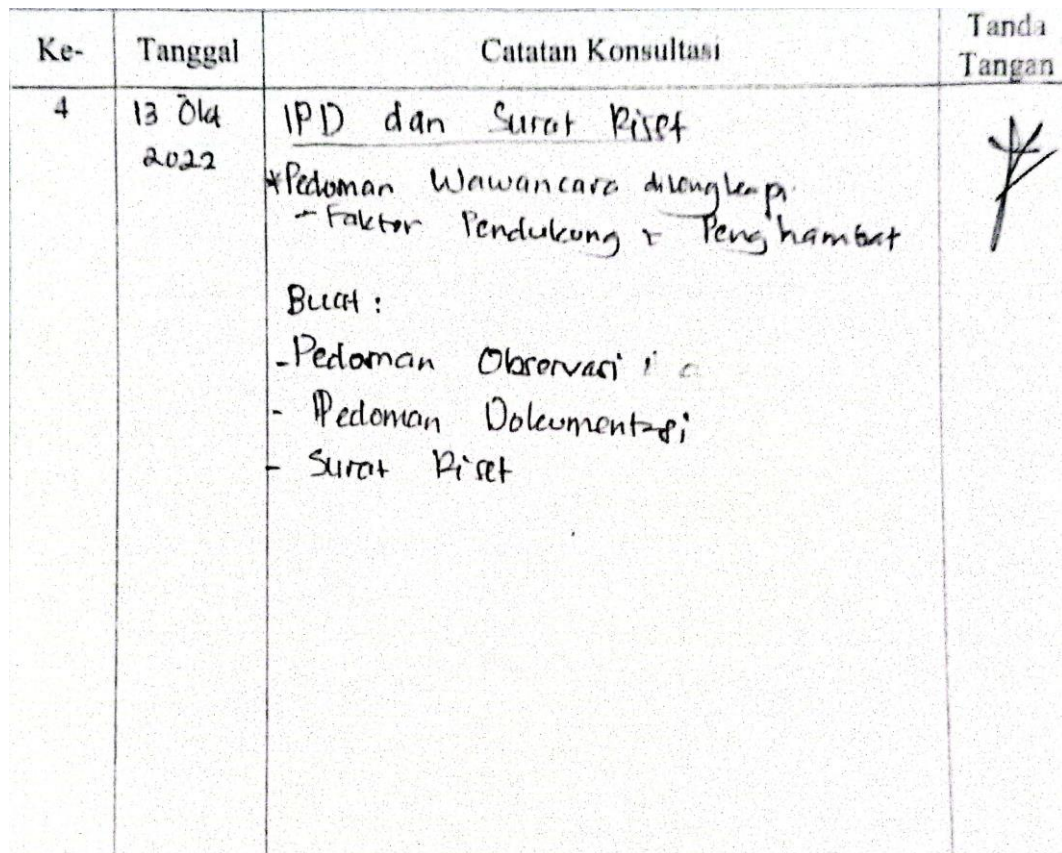 Ke- Tanggal Catatan Konsultasi Tanda Tangan
4 13 Okt 2022 IPD dan Surat Riset
*Pedoman Wawancara dilengkapi
- Faktor Pendukung & Penghambat
Buat :
- Pedoman Observasi
- Pedoman Dokumentasi
- Surat Riset